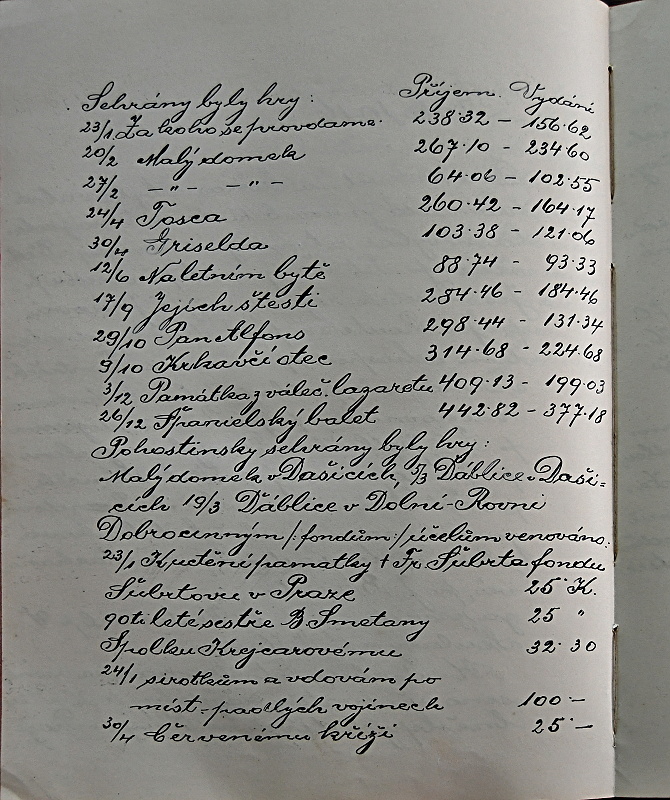 Sehrány byly hry: Příjem Vydání
23/1 Za koho se provdáme. 238·32 – 156·62
20/2 Malý domek 267·10 – 234·60
27/2 – " – – " – 64·06 – 102·55
24/4 Tosca 260·42 – 164·17
30/4 Griselda 103·38 – 121·06
12/6 Na letním bytě 88·74 – 93·33
17/9 Jejich štěstí 284·46 – 184·46
29/10 Pan Alfons 298·44 – 131·34
9/10 Krkavčí otec 314·68 – 224·68
3/12 Památka z váleč. lazaretu 409·13 – 199·03
26/12 Španielský balet 442·82 – 377·18
Pohostinsky sehrány byly hry:
Malý domek v Dašicích, 5/3 Ďáblice v Daši-
cích 19/3 Ďáblice v Dolní-Rovni
Dobročinným /:fondům:/ účelům venováno:
23/1 K uctění památky † Fr. Šubrta fondu
Šubrtovu v Praze 25· K.
90ti leté sestře B Smetany 25 "
Spolku Krejcarovému 32·30
24/1 sirotkům a vdovám po
míst. padlých vojínech 100·–
30/4 Červenému kříži 25·–